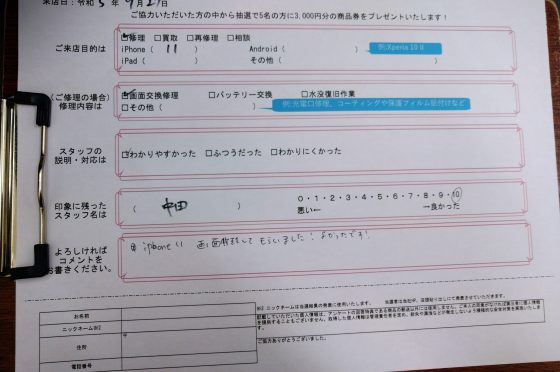 来店日：令和 5 年 9月27日
ご協力いただいた方の中から抽選で5名の方に3,000円分の商品券をプレゼントいたします！
ご来店目的は
☑修理 □買取 □再修理 □相談
iPhone（ 11 ） Android（ ） 例:Xperia 10 II
iPad（ ） その他（ ）
（ご修理の場合）
修理内容は
☑画面交換修理 □バッテリー交換 □水没復旧作業
□その他（ ） 例:充電口修理、コーティングや保護フィルム貼付けなど
スタッフの
説明・対応は
☑わかりやすかった □ふつうだった □わかりにくかった
印象に残った
スタッフ名は
（ 中田 ）
0・1・2・3・4・5・6・7・8・9・10
悪い← →良かった
よろしければ
コメントを
お書きください。
iphone 11 画面修理して もらいました！ よかったです！
お名前
ニックネーム※2
住所
〒
電話番号
※2 ニックネームは当選結果の発表に使用いたします。
ご協力ありがとうございました。